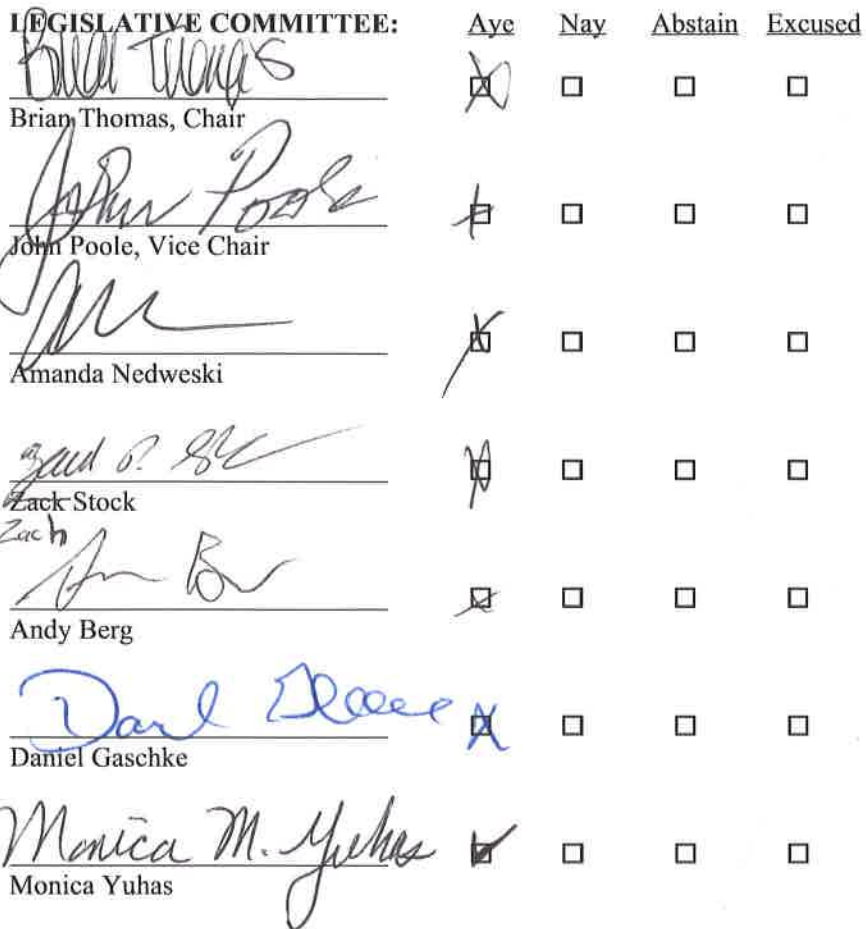 LEGISLATIVE COMMITTEE: Aye Nay Abstain Excused
Brian Thomas
Brian Thomas, Chair
John Poole
John Poole, Vice Chair
Amanda Nedweski
Zack Stock
Zach
Andy Berg
Daniel Gaschke
Monica M. Yuhas
Monica Yuhas